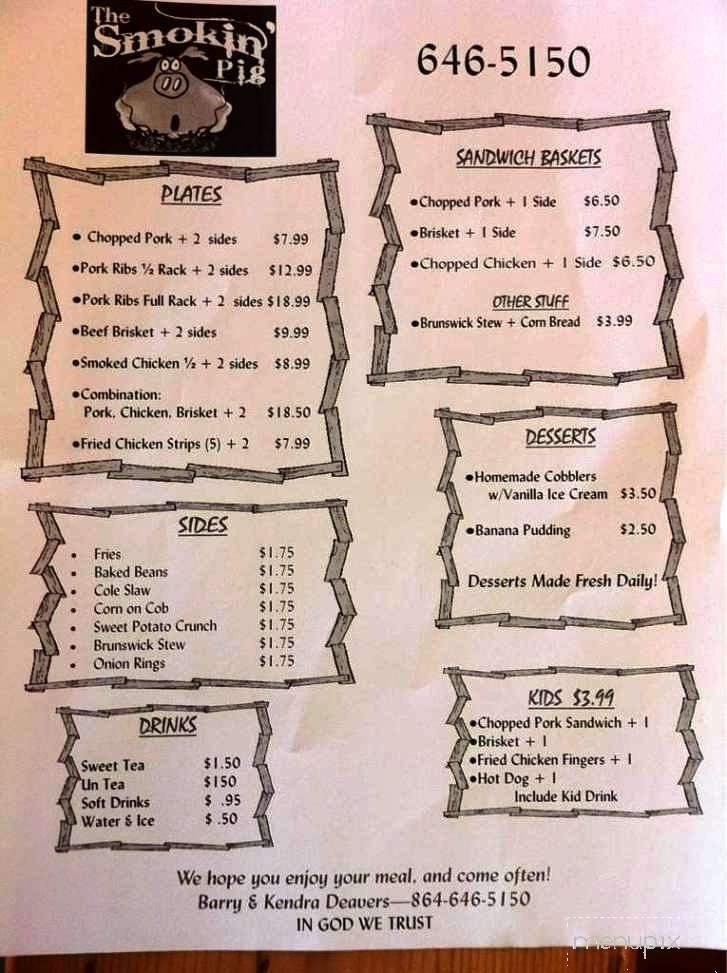 The
Smokin'
Pig
646-5150
PLATES
• Chopped Pork + 2 sides $7.99
•Pork Ribs ½ Rack + 2 sides $12.99
•Pork Ribs Full Rack + 2 sides $18.99
•Beef Brisket + 2 sides $9.99
•Smoked Chicken ½ + 2 sides $8.99
•Combination:
Pork, Chicken, Brisket + 2 $18.50
•Fried Chicken Strips (5) + 2 $7.99
SIDES
• Fries $1.75
• Baked Beans $1.75
• Cole Slaw $1.75
• Corn on Cob $1.75
• Sweet Potato Crunch $1.75
• Brunswick Stew $1.75
• Onion Rings $1.75
DRINKS
Sweet Tea $1.50
Un Tea $150
Soft Drinks $ .95
Water & Ice $ .50
SANDWICH BASKETS
•Chopped Pork + 1 Side $6.50
•Brisket + 1 Side $7.50
•Chopped Chicken + 1 Side $6.50
OTHER STUFF
•Brunswick Stew + Corn Bread $3.99
DESSERTS
•Homemade Cobblers
w/Vanilla Ice Cream $3.50
•Banana Pudding $2.50
Desserts Made Fresh Daily!
KIDS $3.99
•Chopped Pork Sandwich + 1
•Brisket + 1
•Fried Chicken Fingers + 1
•Hot Dog + 1
Include Kid Drink
We hope you enjoy your meal, and come often!
Barry & Kendra Deavers—864-646-5150
IN GOD WE TRUST
menupix